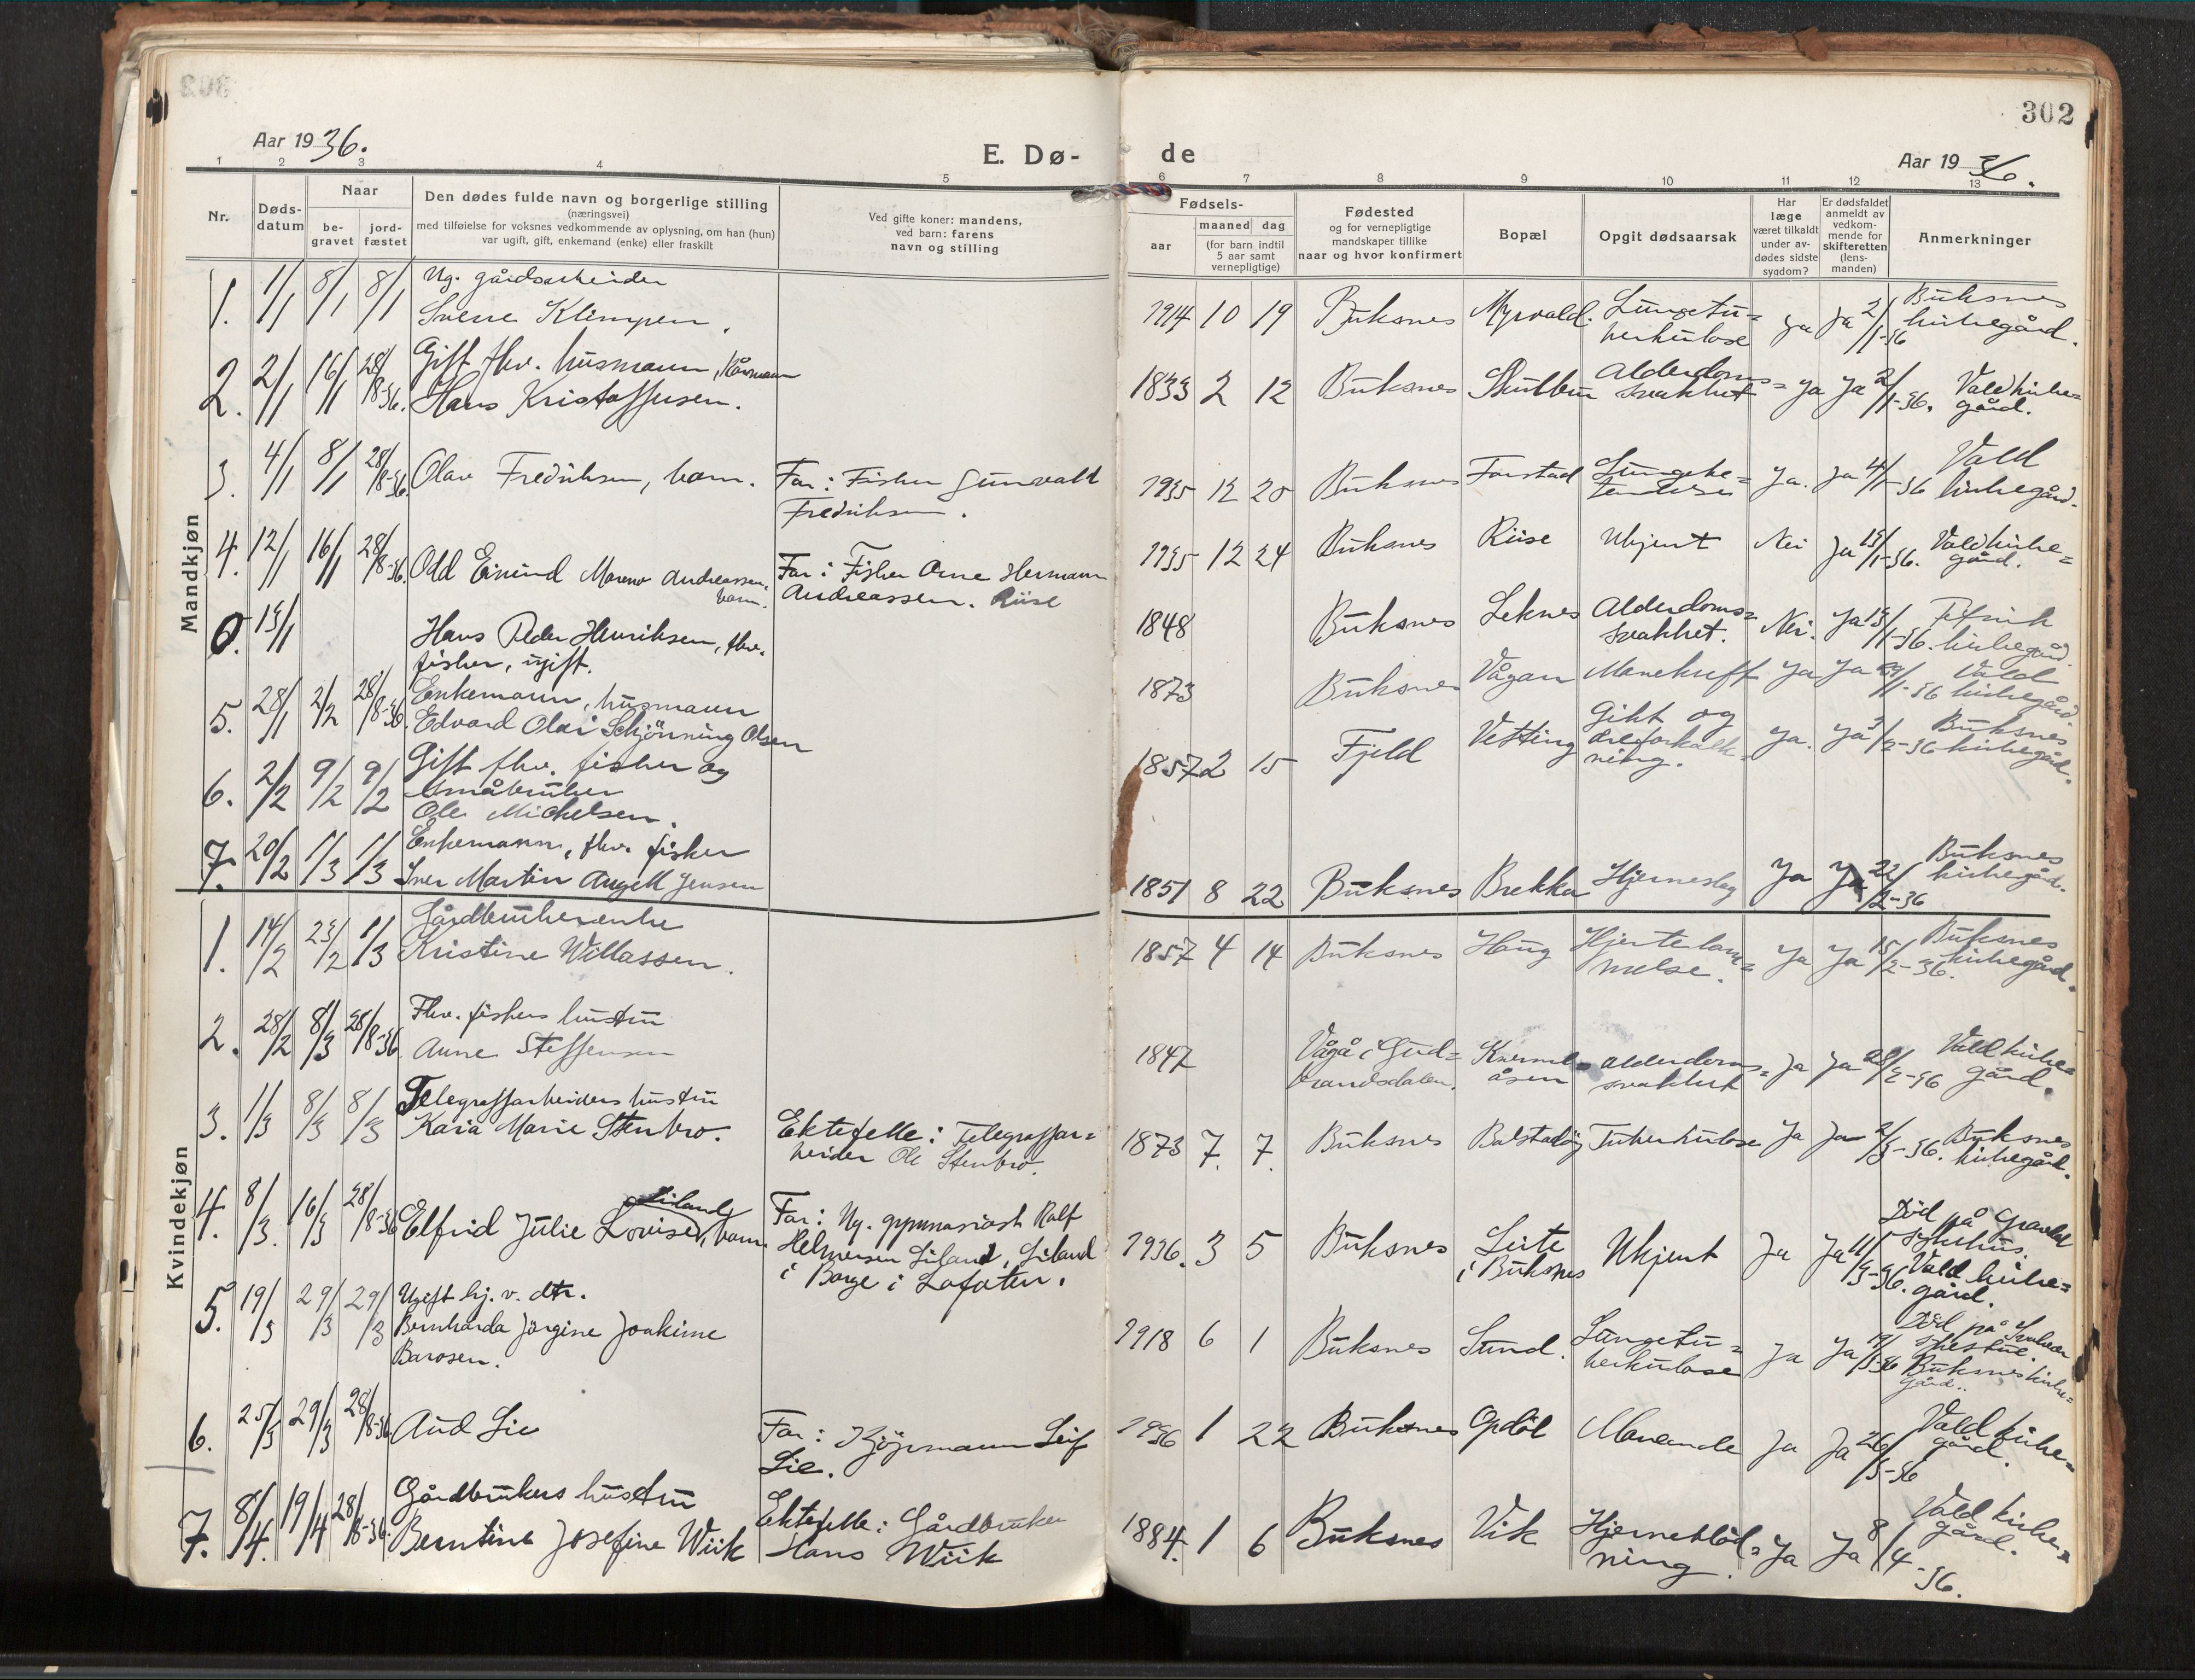 302
Aar 1936.
E. Dø-
de
Aar 1936.
1 2 3 4 5 6 7 8 9 10 11 12 13
Nr.
Døds-
datum
Naar
be-
gravet
jord-
fæstet
Den dødes fulde navn og borgerlige stilling
(næringsvei)
med tilføielse for voksnes vedkommende av oplysning, om han (hun)
var ugift, gift, enkemand (enke) eller fraskilt
Ved gifte koner: mandens,
ved barn: farens
navn og stilling
Fødsels-
aar
maaned dag
(for barn indtil
5 aar samt
vernepligtige)
Fødested
og for vernepligtige
mandskaper tillike
naar og hvor konfirmert
Bopæl
Opgit dødsaarsak
Har
læge
været tilkaldt
under av-
dødes sidste
sygdom?
Er dødsfaldet
anmeldt av
vedkom-
mende for
skifteretten
(lens-
manden)
Anmerkninger
Mandkjøn
1. 1/1 8/1 8/1 Ug. gårdsarbeider
Sverre Klimpen.
1914 10 19 Buksnes Myrvold. Lungetu=
berkulose ja ja 2/1-36 Buksnes
kirkegård.
2. 2/1 16/1 28/8-36. Gift fhv. husmann, kårmann
Hans Kristoffersen.
1833 2 12 Buksnes Skulbru Alderdoms=
svakhet ja ja 2/1-36. Vold kirke=
gård.
3. 4/1 8/1 28/8-36. Olav Fredriksen, barn. Far: Fisker Gunvald
Fredriksen.
1935 12 20 Buksnes Farstad Lungebe=
tendelse Ja. Ja 4/1-36 Vold
kirkegård.
4. 12/1 16/1 28/8-36. Odd Eivind Moreno Andreassen,
barn. Far: Fisker Arne Hermann
Andreassen. Riise
1935 12 24 Buksnes Riise Ukjent Nei Ja 13/1-36. Vold kirke=
gård.
0. 13/1 Hans Peder Henriksen, fhv.
fisker, ugift.
1848 Buksnes Leknes Alderdoms=
svakhet. Nei. Ja 13/1-36. kirkegård.
5. 28/1 2/2 28/8-36. Enkemann, husmann
Edvard Olai Schjönning Olsen
1873 Buksnes Vågan Mavekreft Ja Ja 29/1-36 Vold
kirkegård.
6. 2/2 9/2 9/2 Gift fhv. fisker og
småbruker
Ole Michelsen.
1857 2 15 Fjeld Vetting Gikt og
åreforkalk-
ning. Ja. Ja 3/2-36 Buksnes
kirkegård.
7. 20/2 1/3 1/3 Enkemann, fhv. fisker
Iver Martin Angell Jensen
1851 8 22 Buksnes Brekka Hjerneslag Ja Ja 22/2-36 Buksnes
kirkegård.
Kvindekjøn
1. 14/2 23/2 1/3 Gårdbrukerenke
Kristine Willassen.
1857 4 14 Buksnes Haug Hjertelam=
melse. Ja Ja 15/2-36. Buksnes
kirkegård.
2. 28/2 8/3 28/8-36 Fhv. fiskers hustru
Anne Steffensen
1847 Vågå i Gud=
brandsdalen. åsen Alderdoms=
svakhet Ja Ja 28/2-36 Vold kirke=
gård.
3. 1/3 8/3 8/3 Telegrafarbeiders hustru
Karia Marie Stenbro. Ektefelle: Telegrafar=
beider Ole Stenbro.
1873 7. 7. Buksnes Balstadöy Tuberkulose Ja Ja 2/3-36. Buksnes
kirkegård.
4. 8/3. 16/3 28/8-36 Elfrid Julie Lovise Liland, barn Far: Ug. gymnasiast Ralf
Helmersen Liland, Liland
i Borge i Lofoten.
1936. 3 5 Buksnes Leite
i Buksnes Ukjent Ja Ja 11/3-36. Död på Gravdal
sykehus.
Vold kirke=
gård.
5. 19/3 29/3 29/3 Ugift hj. v. dtr.
Bernharda Jörgine Joakime
Barosen.
1918 6 1 Buksnes Sund. Lungetu=
berkulose Ja Ja 19/3-36 Död på Svolvær
Buksnes kirke=
gård..
6. 25/3 29/3 28/8-36 Aud Lie Far: Leif
Lie.
1936 1 22 Buksnes Opdöl Ja Ja 26/3-36 Vold kirke=
gård.
7. 8/4. 19/4 28/8-36. Gårdbrukers hustru
Berntine Josefine Wiik Ektefelle: Gårdbruker
Hans Wiik
1884. 1 6 Buksnes Vik Hjerneblöd=
ning. Ja Ja 8/4-36. Vold kirke=
gård.